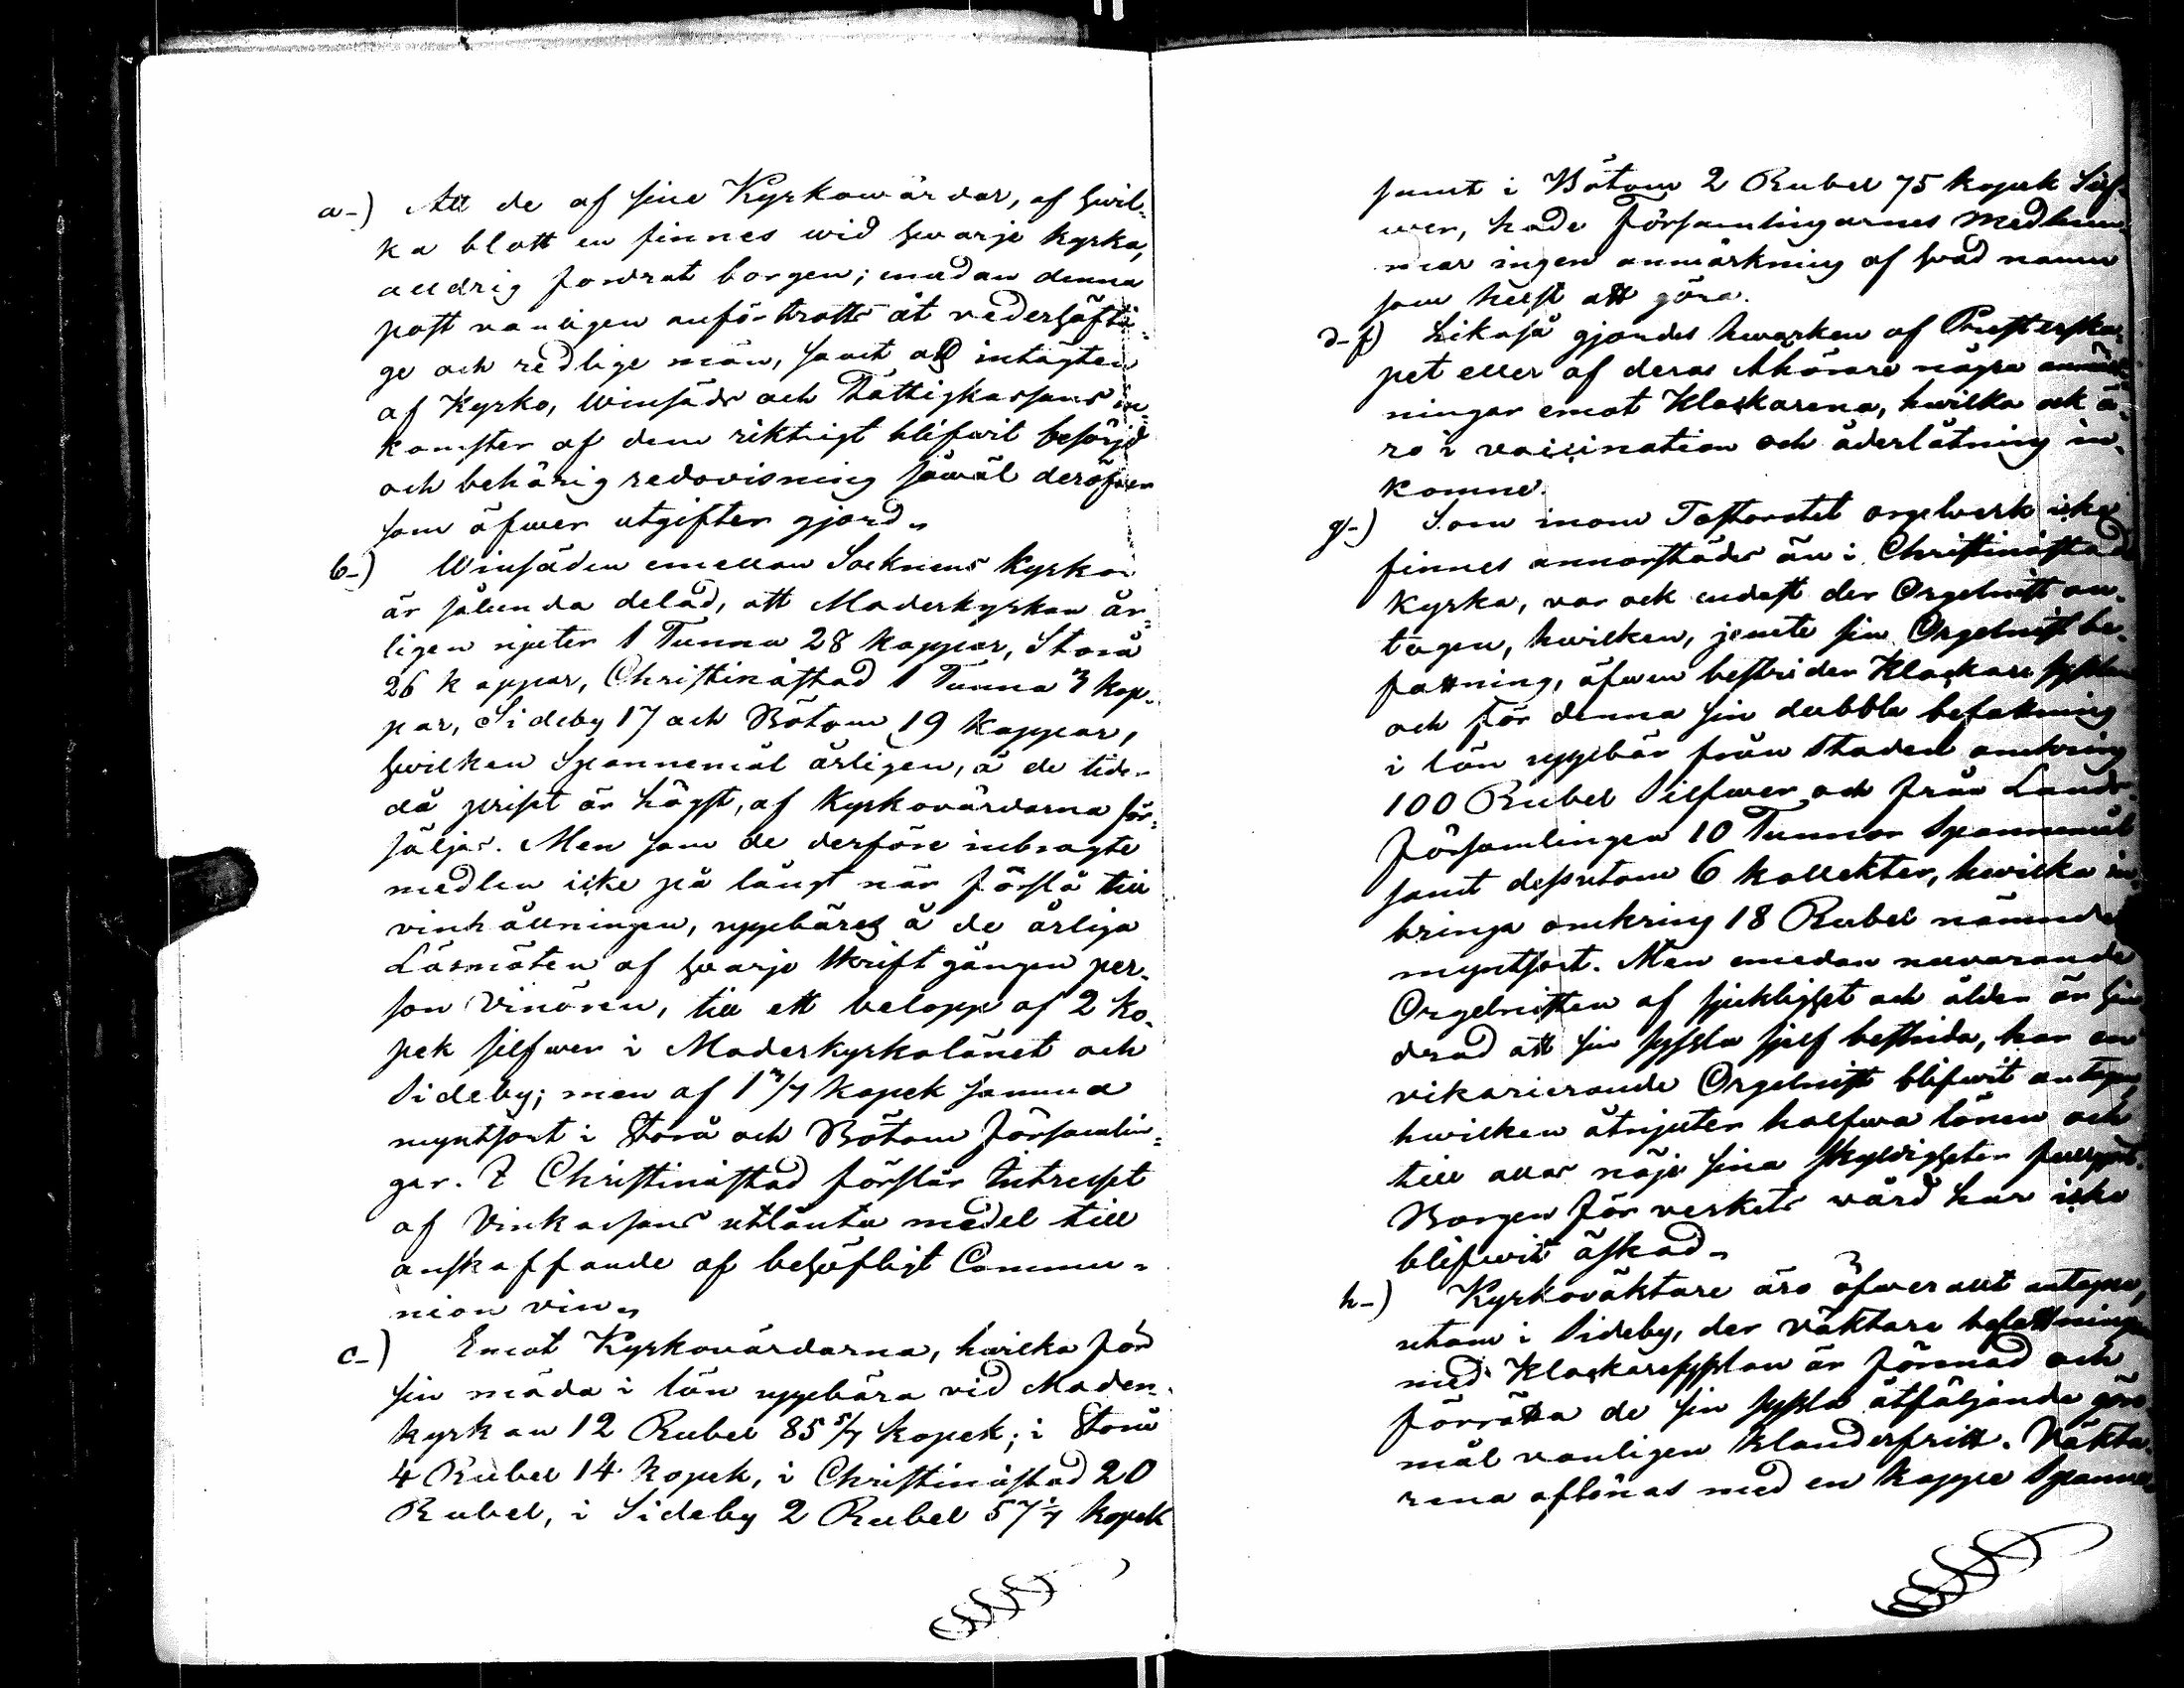 a-) Att de af sine Kyrkowärdar, af hwil-
ka blott en finnes wid hwarje kyrka,
alldrig fordrat borgen; emedan denna
post vanligen anförtrotts åt vederhäfti-
ge och redlige män, samt att intägten
af Kyrko, Winsäds och Fattigkassans in-
komster af dem riktrigt blifwit besörjd
och behörig redovisning såwäl deröfwer
som öfwer utgifter gjord.
b-) Winsäden emellan Socknens kyrkor
är sålunda delad, att Moderkyrkan år-
ligen njuter 1 Tunna 28 kappar, Storå
26 kappar, Christinästad 1 Tunna 3 kap-
par, Sideby 17 och Bötom 19 kappar,
hwilken Spannemål årligen, å de tider
då priset är högst, af Kyrkovärdarna för-
säljes. Men som de derföre inbragte
medlen icke på långt när förslå till
vinhållningen, uppbäres å de årliga
Läsmöten af hwarje skriftgången per-
son Vinören, till ett belopp af 2 ko-
pek silfwer i Moderkyrkolänet och
Sideby; men af 1 3/7 kopek samma
myntsort i Storå och Bötom Församlin-
gar. I Christinästad förslår Intresset
af Vinkassans utlånta medel till
anskaffande af behöfligt Commu-
nion vin.
c-) Emot Kyrkovärdarna, hwilka för
sin möda i lön uppbära vid Moder-
kyrkan 12 Rubel 85 5/7 kopek; i Storå
4 Rubel 14 kopek, i Christinästad 20
Rubel, i Sideby 2 Rubel 57 1/7 kopek
samt i Bötom 2 Rubel 75 kopek Silf-
wer, hade Församlingarnes medlem-
mar ingen anmärkning af hvad namn
som hellst att göra.
d-f) Likaså gjordes hwarken af Presterska-
pet eller af deras Åhörare några anmärk-
ningar emot Klockarena, hwilka ock ä-
ro i vaccination och åderlåtning in-
komne.
g-) Som inom Pastoratet orgelverk icke
finnes annorstädes än i Christinästads
Kyrka, var ock endast der Orgelnist an-
tagen, hwilken, jemte sin Orgelnist be-
fattning, äfwen bestrider Klockare sysslan
och för denna sin dubbla befattning
i lön uppbär från Staden omkring
100 Rubel Silfwer och från Lands-
församlingen 10 Tunnor Spannemål
samt dessutom 6 kollekter, hwilka in-
bringa omkring 18 Rubel nämnde
myntsort. Men emedan nuvarande
Orgelnisten af sjuklighet och ålder är hin-
drad att sin syssla sjelf bestrida, har en
vikarierande Orgelnist blifwit antagen,
hwilken åtnjuter halfwa lönen och
till allas nöje sina skyldigheter fullgör.
Borgen för verkets wård har icke
blifwit äskad.
h-) Kyrkoväktare äro öfwerallt antagne,
utom i Sideby, der väktare befattningen
med Klockaresysslan är förenad och
förrätta de sin syssla åtföljande göro-
mål vanligen klanderfritt. Väkta-
rena aflönas med en kappe Spanne